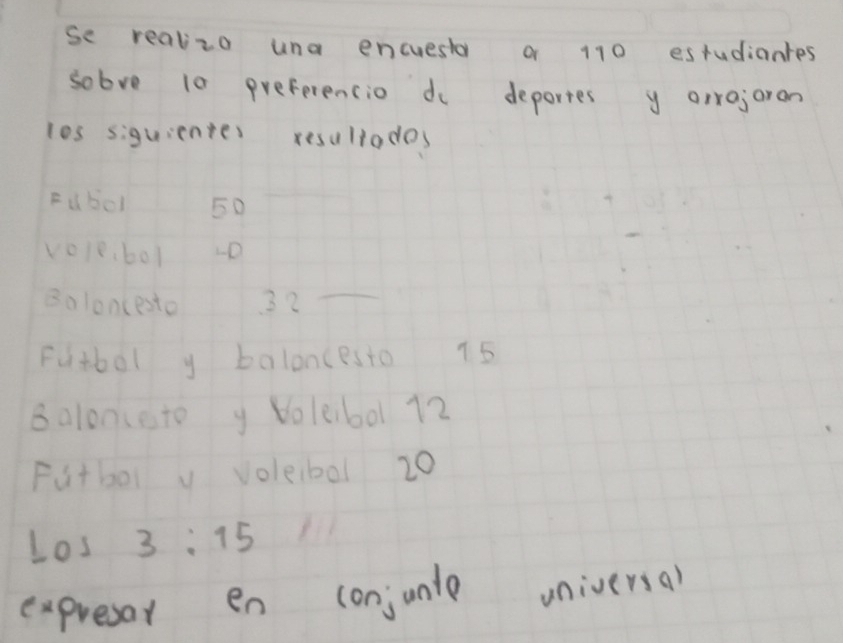 se realizo una encuesta a 110 estudiantes
sobre la preferencia de deportes y arrojaron
los siguientes resultados
Fubol 50
Voleibol
Baloncesto 32
Fútbol y baloncesto 15
Baloncesto y Voleibol 12
Fútbol y voleibol 20
Los 3 : 15
expresar en conjunto universal